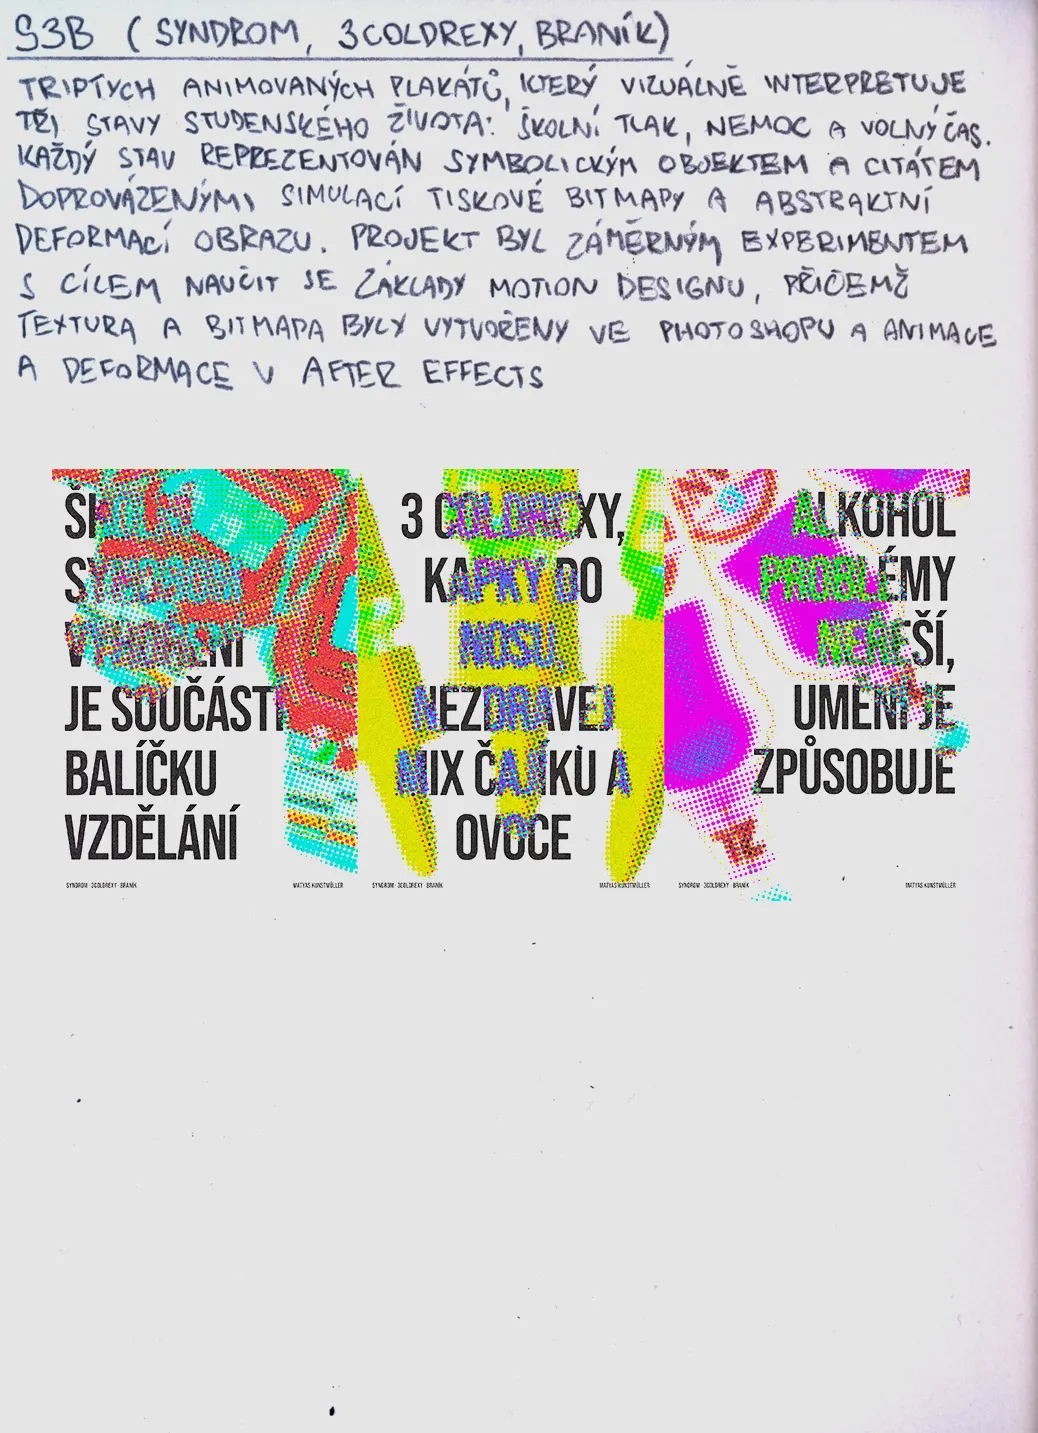 S3B (SYNDROM, 3COLDREXY, BRANÍK)
TRIPTYCH ANIMOVANÝCH PLAKÁTŮ, KTERÝ VIZUÁLNĚ INTERPRETUJE
TŘI STAVY STUDENSKÉHO ŽIVOTA: ŠKOLNÍ TLAK, NEMOC A VOLNÝ ČAS.
KAŽDÝ STAV REPREZENTOVÁN SYMBOLICKÝM OBJEKTEM A CITÁTEM
DOPROVÁZENÝMI SIMULACÍ TISKOVÉ BITMAPY A ABSTRAKTNÍ
DEFORMACÍ OBRAZU. PROJEKT BYL ZÁMĚRNÝM EXPERIMENTEM
S CÍLEM NAUČIT SE ZÁKLADY MOTION DESIGNU, PŘIČEMŽ
TEXTURA A BITMAPA BYLY VYTVOŘENY VE PHOTOSHOPU A ANIMACE
A DEFORMACE V AFTER EFFECTS
SYNDROM
VYHOŘENÍ
JE SOUČÁSTÍ
BALÍČKU
VZDĚLÁNÍ
SYNDROM · 3COLDREXY · BRANÍK
MATYAS KUNSTMÜLLER
3 COLDREXY,
KAPKY DO
NOSU,
NEZDRAVEJ
MIX ČAJÍKŮ A
OVOCE
SYNDROM · 3COLDREXY · BRANÍK
MATYAS KUNSTMÜLLER
ALKOHOL
PROBLÉMY
NEŘEŠÍ,
UMĚNÍ JE
ZPŮSOBUJE
SYNDROM · 3COLDREXY · BRANÍK
MATYAS KUNSTMÜLLER